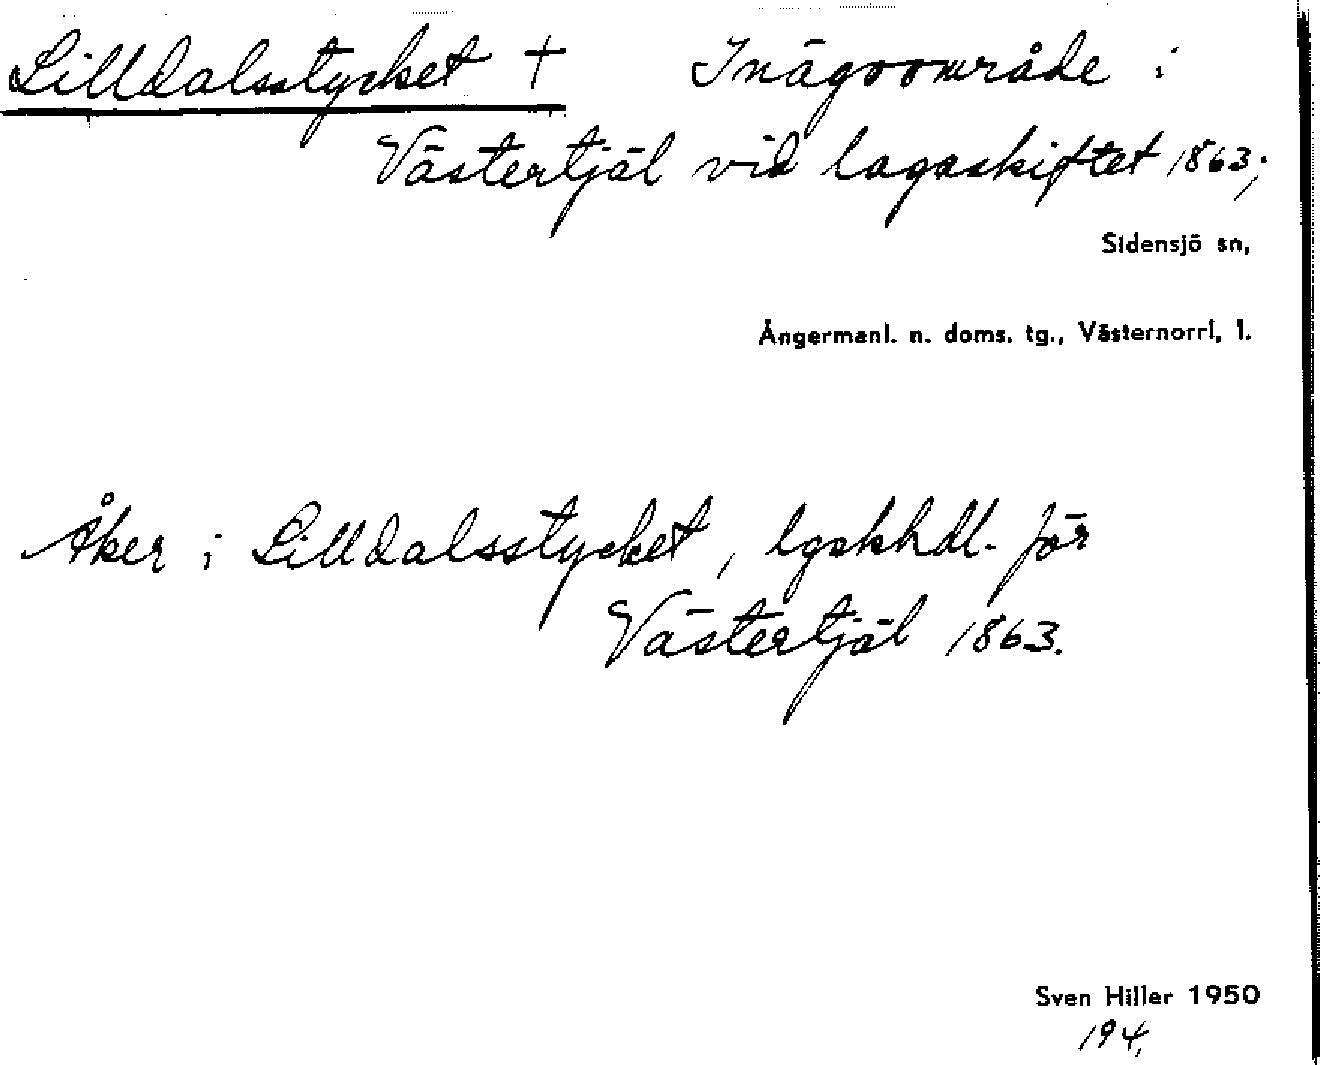 Lilldalsstycket † Inägoområde i
Västertjäl vid lagaskiftet 1863;
Sidensjö sn,
Ångermanl. n. doms. tg., Västernorrl. l.
Åker i Lilldalsstycket, lgskhdl. för
Västertjäl 1863.
Sven Hiller 1950
194.